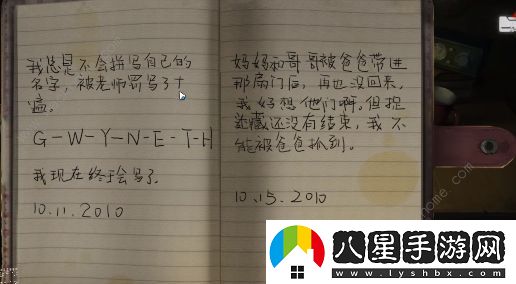 我总是不会拼写自己的
名字，被老师罚写了十
遍。
G-W-Y-N-E-T-H
我现在终于会写了。
10.11.2010
妈妈和哥哥被爸爸带进
那扇门后，再也没回来，
我好想他们啊。但捉
迷藏还没有结束，我不
能被爸爸抓到。
10.15.2010
八星手游网
www.lyshbx.com